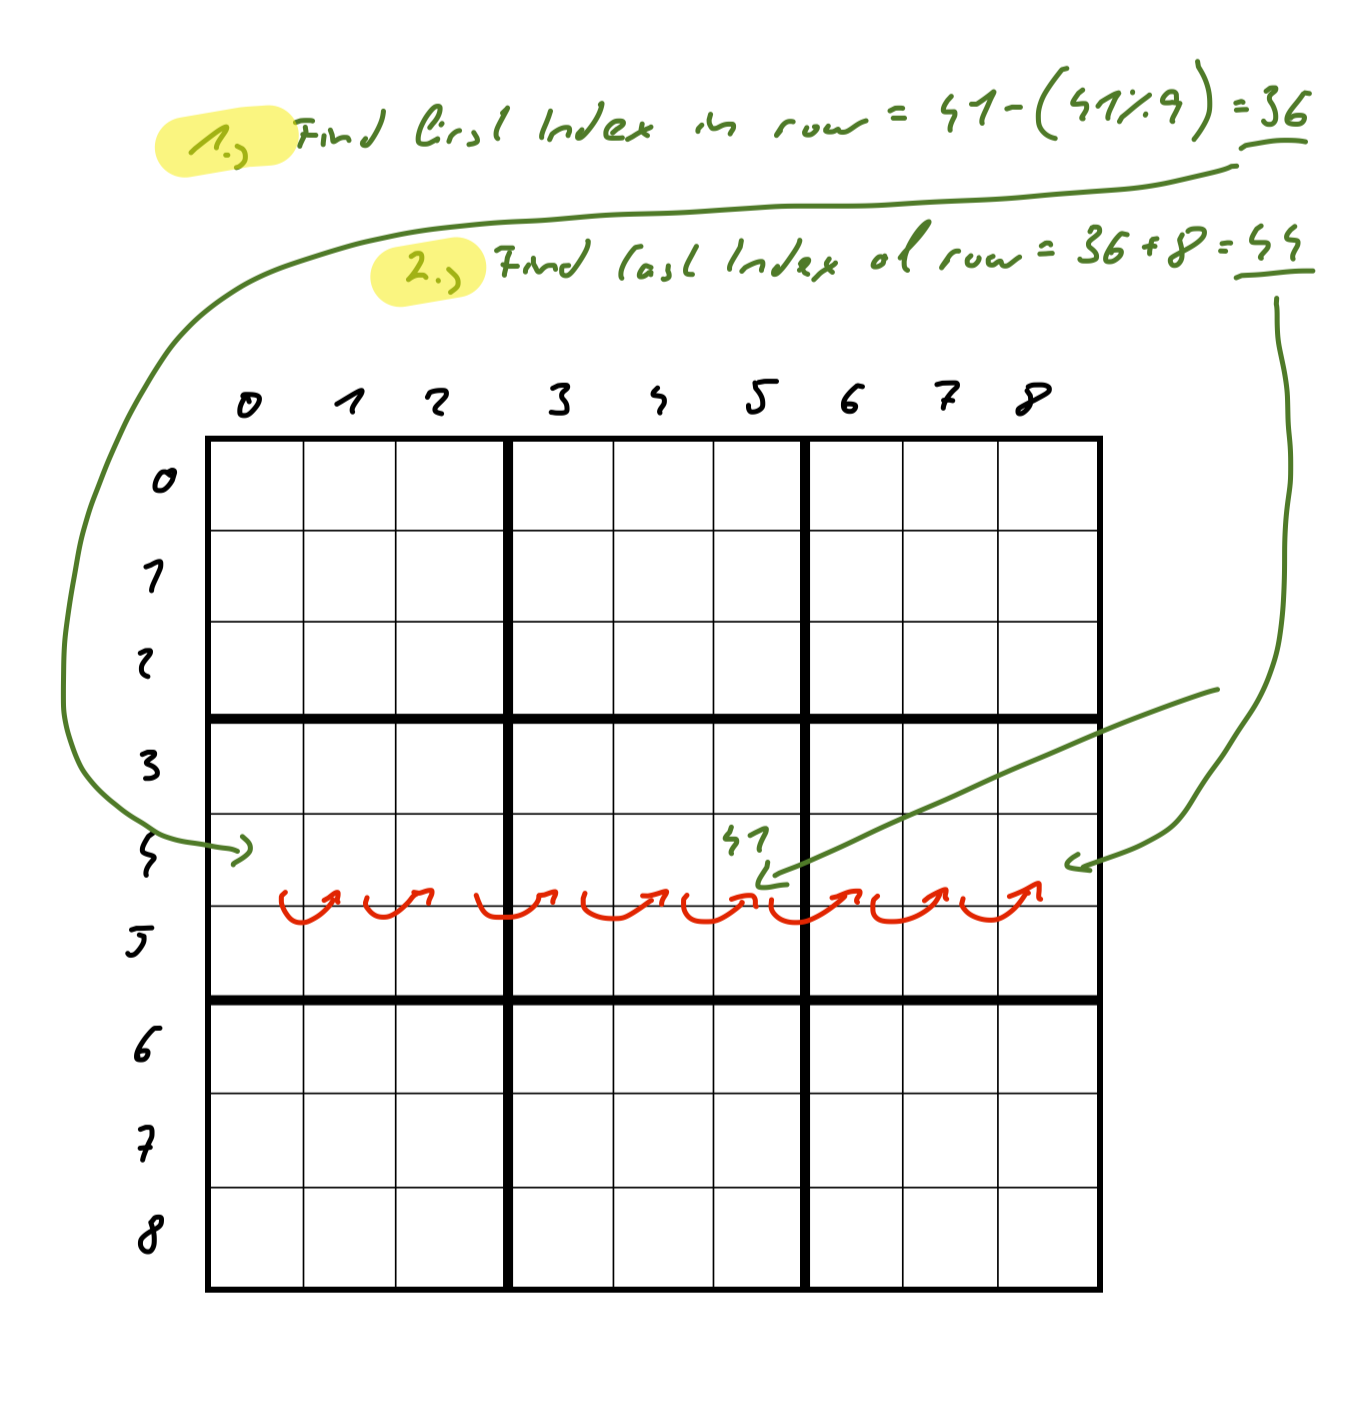 1.) Find first Index in row = 41-(41%9) = 36
2.) Find last Index of row = 36+8 = 44
0 1 2 3 4 5 6 7 8
0
1
2
3
4
41
5
6
7
8